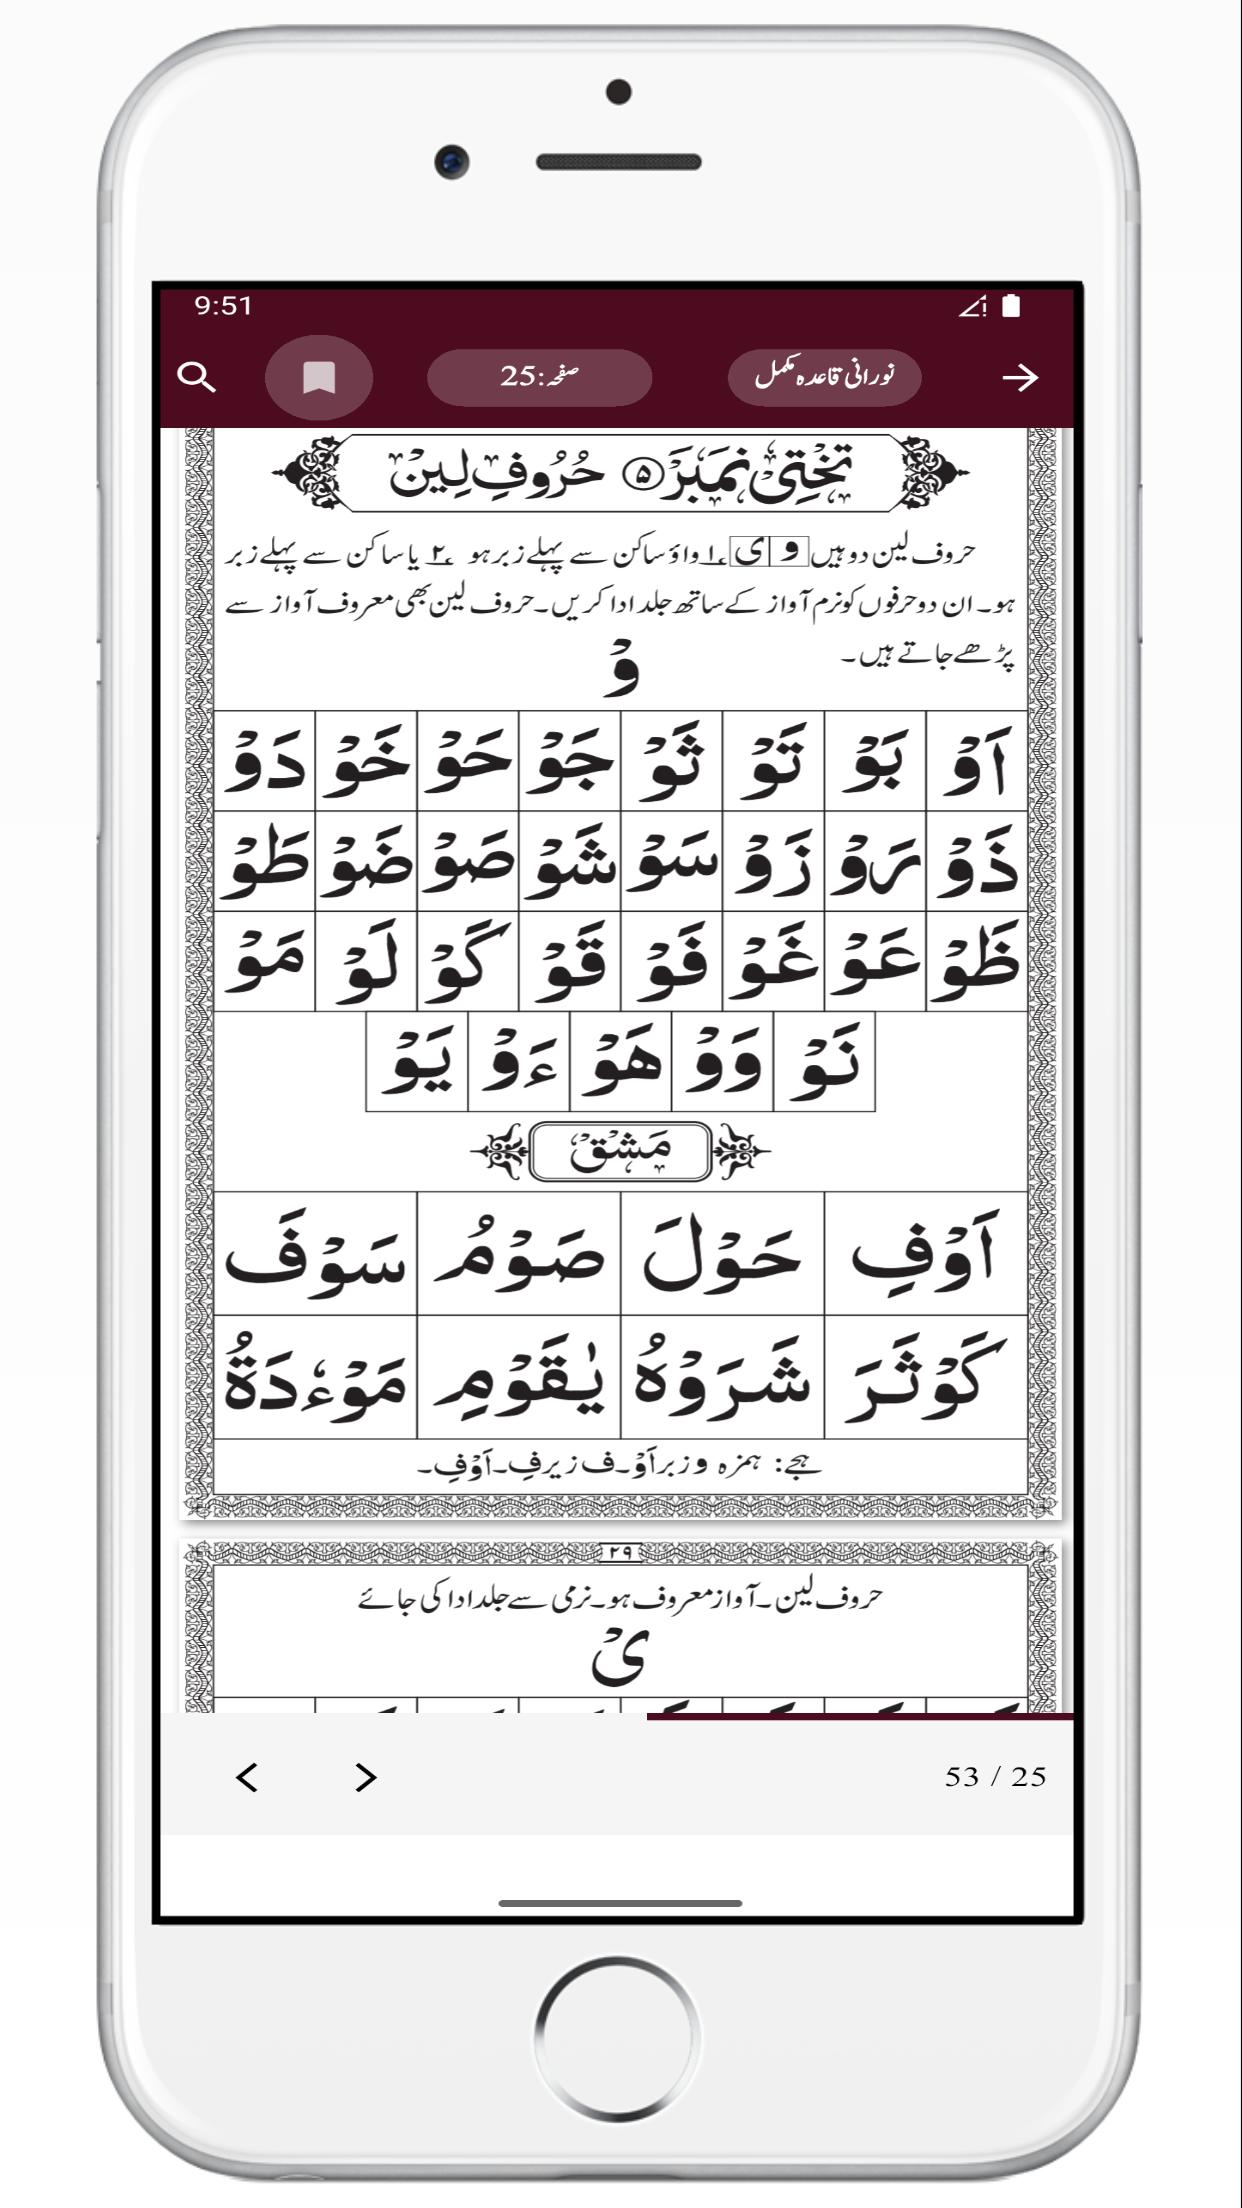 9:51
صفحہ:25 نورانی قاعدہ مکمل
تَخْتِیْ نَمْبَرْ ۵ حُرُوفِ لِیْنْ
حروف لین دو ہیں و ی ۱ واؤ ساکن سے پہلے زبر ہو ۲ یا ساکن سے پہلے زبر
ہو۔ ان دو حرفوں کو نرم آواز کے ساتھ جلد ادا کریں۔ حروف لین بھی معروف آواز سے
پڑھے جاتے ہیں۔
وْ
اَوْ بَوْ تَوْ ثَوْ جَوْ حَوْ خَوْ دَوْ
ذَوْ رَوْ زَوْ سَوْ شَوْ صَوْ ضَوْ طَوْ
ظَوْ عَوْ غَوْ فَوْ قَوْ كَوْ لَوْ مَوْ
نَوْ وَوْ هَوْ ءَوْ يَوْ
مَشْقْ
اَوْفِ حَوْلَ صَوْمُ سَوْفَ
كَوْثَرَ شَرَوْهُ يٰقَوْمِ مَوْءٗدَةُ
ہجے: ہمزہ و زبر اَوْ۔ ف زیر فِ۔ اَوْفِ۔
۲۹
حروف لین۔ آواز معروف ہو۔ نرمی سے جلد ادا کی جائے
یْ
53 / 25